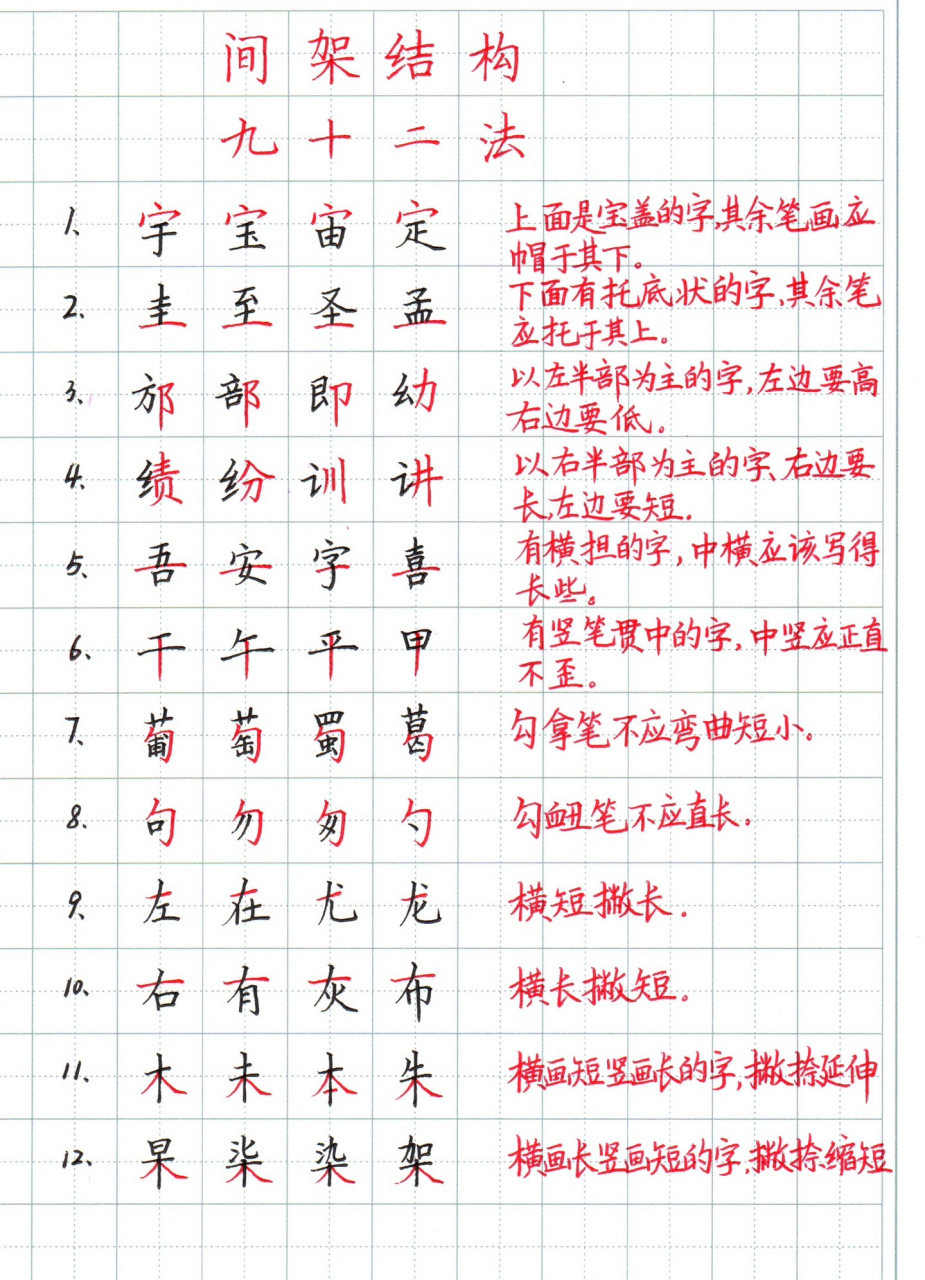 间架结构
九十二法
1、 宇 宝 宙 定 上面是宝盖的字,其余笔画应
帽于其下。
2、 圭 至 圣 孟 下面有托底状的字,其余笔
应托于其上。
3、 邡 部 即 幼 以左半部为主的字,左边要高
右边要低。
4、 绩 纷 训 讲 以右半部为主的字、右边要
长,左边要短.
5、 吾 安 字 喜 有横担的字,中横应该写得
长些。
6、 干 午 平 甲 有竖笔贯中的字,中竖应正直
不歪。
7、 葡 萄 蜀 葛 勾拿笔不应弯曲短小。
8、 句 勿 匆 勺 勾血丑笔不应直长.
9、 左 在 尤 龙 横短撇长.
10、 右 有 灰 布 横长撇短.
11、 木 未 本 朱 横画短竖画长的字,撇捺延伸
12、 杲 柒 染 架 横画长竖画短的字,撇捺缩短